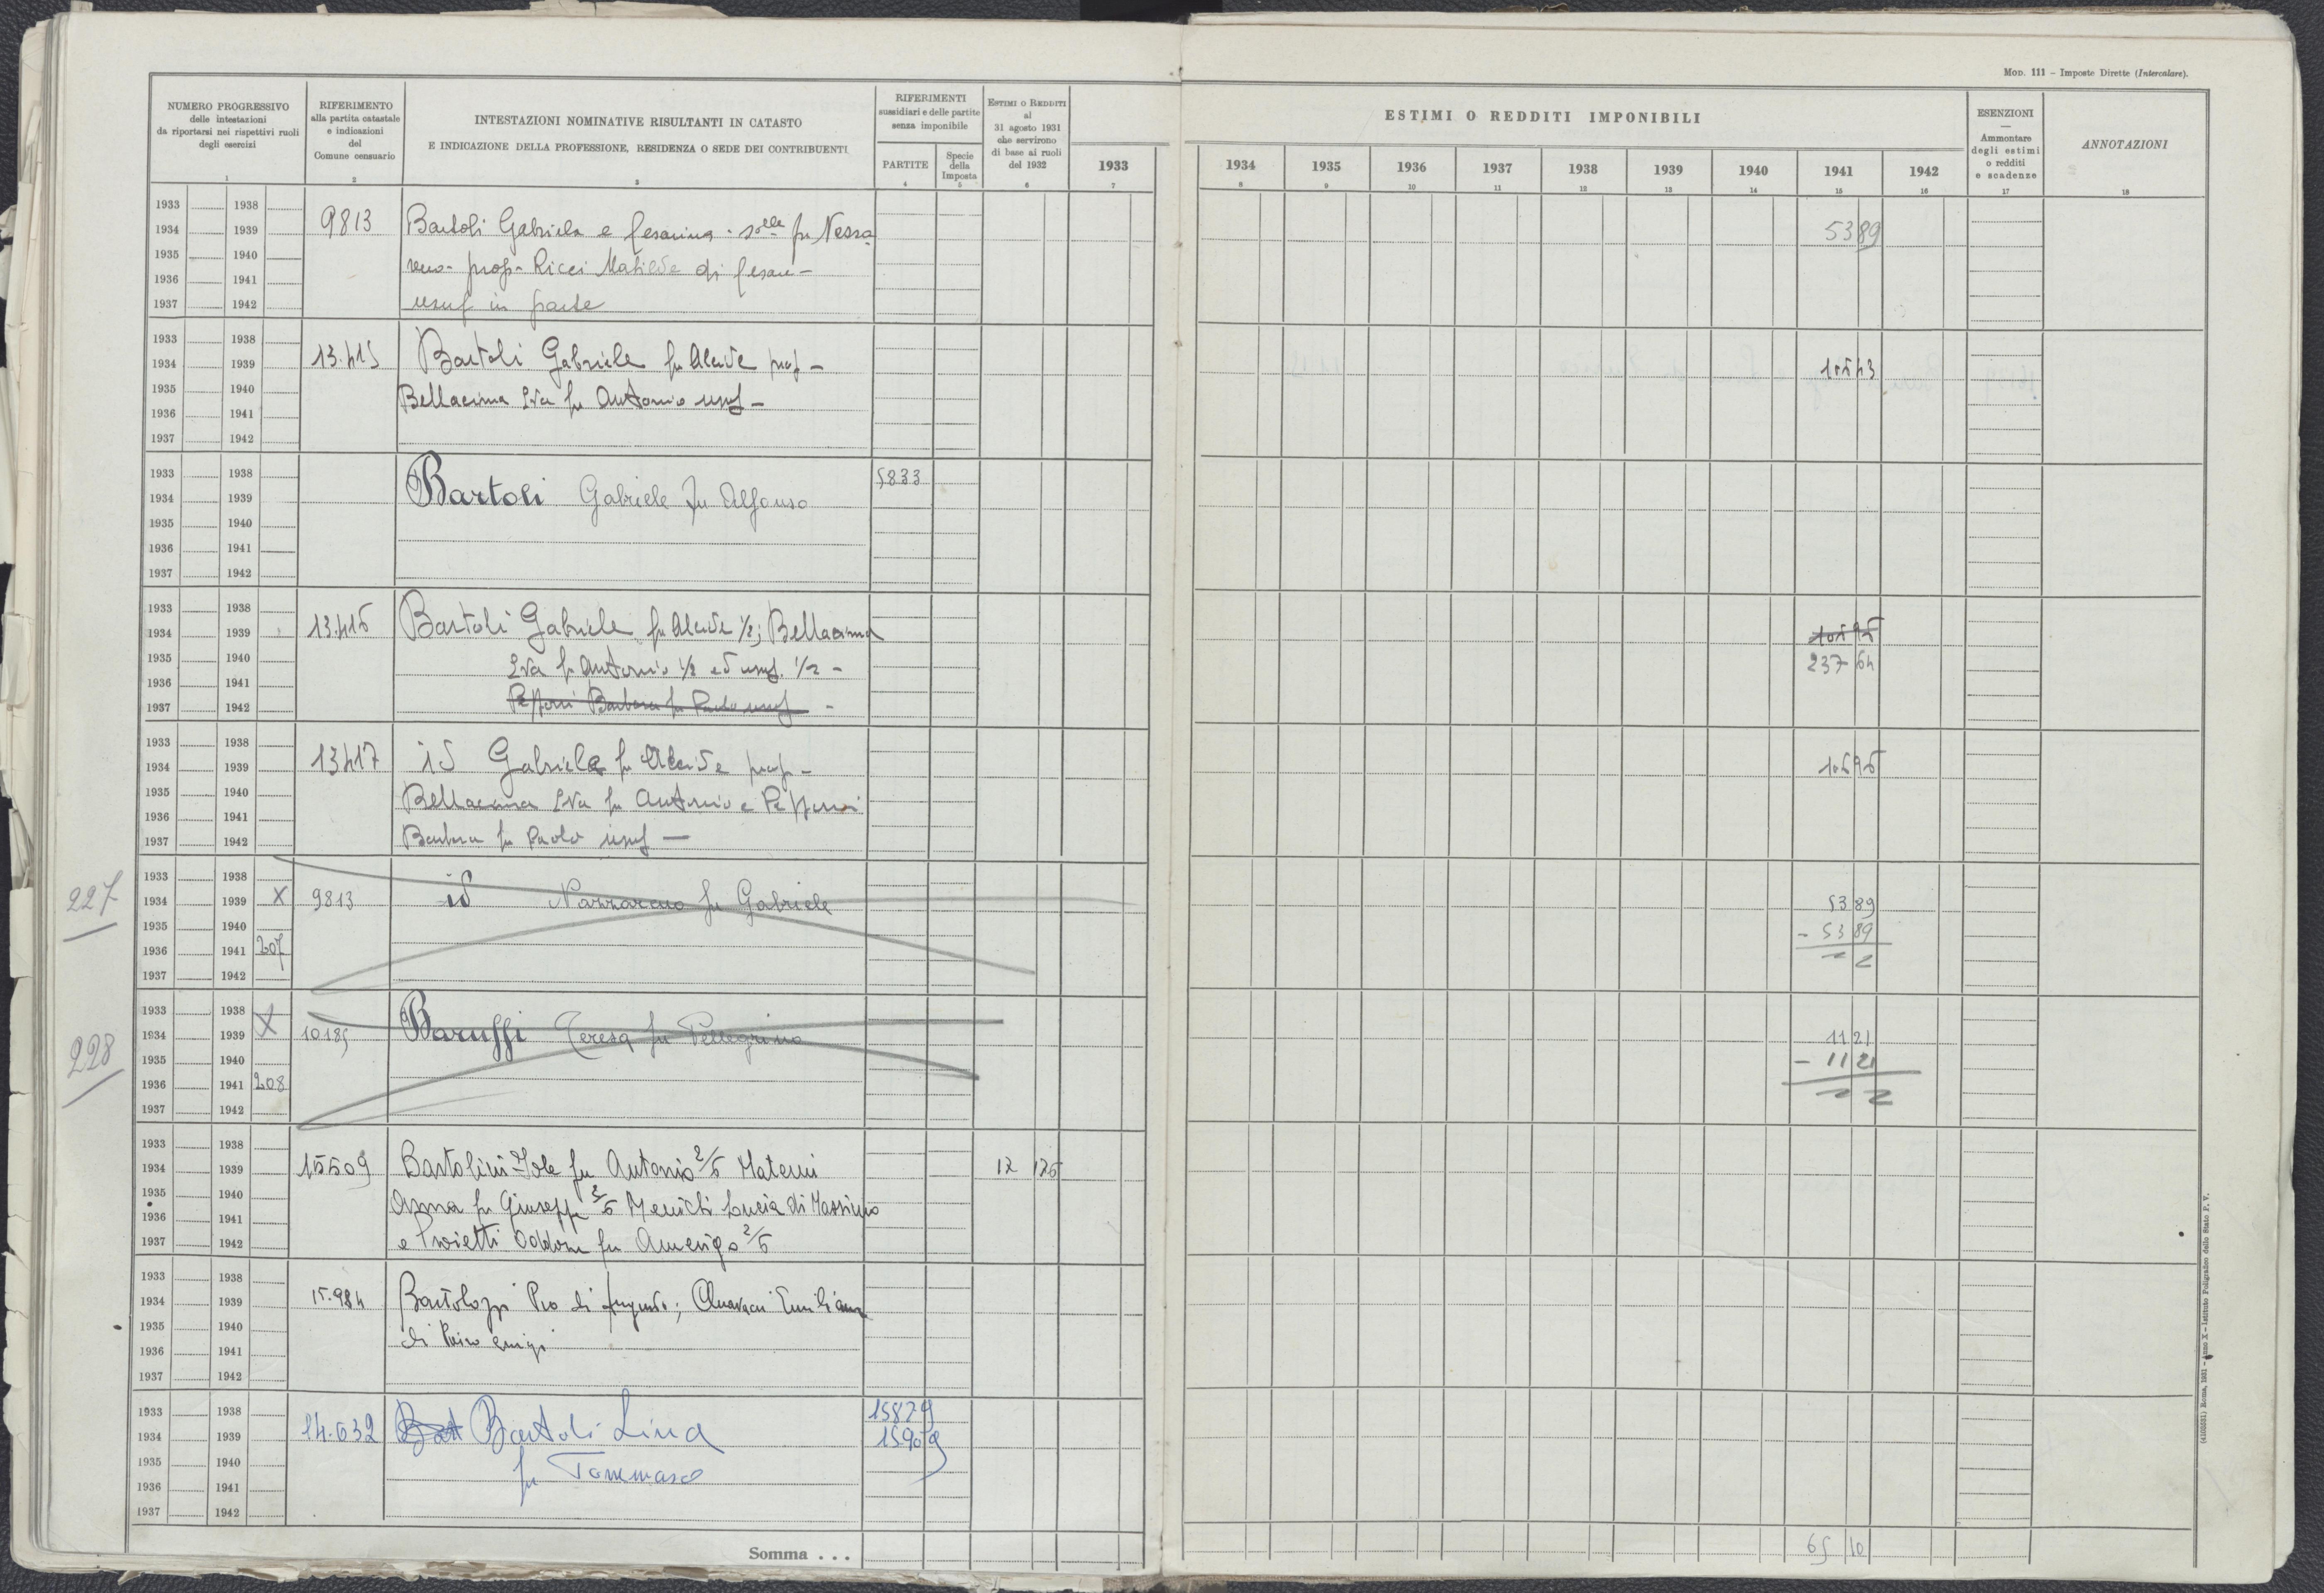 MOD. 111 – Imposte Dirette (Intercalare).
NUMERO PROGRESSIVO
delle intestazioni
da riportarsi nei rispettivi ruoli
degli esercizi
1
RIFERIMENTO
alla partita catastale
e indicazioni
del
Comune censuario
2
INTESTAZIONI NOMINATIVE RISULTANTI IN CATASTO
E INDICAZIONE DELLA PROFESSIONE, RESIDENZA O SEDE DEI CONTRIBUENTI
3
RIFERIMENTI
sussidiari e delle partite
senza imponibile
PARTITE
4
Specie
della
Imposta
5
ESTIMI O REDDITI
al
31 agosto 1931
che servirono
di base ai ruoli
del 1932
6
ESTIMI O REDDITI IMPONIBILI
1933 1934 1935 1936 1937 1938 1939 1940 1941 1942
7 8 9 10 11 12 13 14 15 16
ESENZIONI
—
Ammontare
degli estimi
o redditi
e scadenze
17
ANNOTAZIONI
18
1933 1938
1934 1939 9813 Bartoli Gabriela e Cesarina · solle fu Nazza 53 89
1935 1940 reno - prop - Ricci Matilde di Cesare -
1936 1941
1937 1942 usuf in parte
1933 1938
1934 1939 13.415 Bartoli Gabriele fu Alcide prop -
1935 1940 Bellacima Eva fu Antonio usuf -
1936 1941
1937 1942
1933 1938 5833
1934 1939 Bartoli Gabriele fu Alfonso
1935 1940
1936 1941
1937 1942
1933 1938
1934 1939 13.416 Bartoli Gabriele fu Alcide 1/2; Bellacima
1935 1940 Eva fu Antonio 1/2 ed usuf. 1/2 - 237 64
1936 1941
1937 1942 Barbara fu Paolo usuf -
1933 1938
1934 1939 13417 id Gabriele fu Alcide prop -
1935 1940 Bellacima Eva fu Antonio e
1936 1941
1937 1942 Barbara fu Paolo usuf -
1933 1938
227 1934 1939 X 9813 id Nazzareno fu Gabriele 53 89
1935 1940 - 53 89
1936 1941 207
1937 1942
1933 1938
228 1934 1939 X 10185 Baruffi Teresa fu Pellegrino 11 21
1935 1940 - 11 21
1936 1941 208
1937 1942
1933 1938
1934 1939 15509 Bartolini Iole fu Antonio 2/6 Materni 12
1935 1940
1936 1941 Anna fu Giuseppe Menichi Lucia di Massimo
1937 1942 e Proietti Oddone fu Amerigo 2/6
1933 1938
1934 1939 15.984 Bartolozzi Pio di Augusto; Emiliana
1935 1940
1936 1941 di
1937 1942
1933 1938 15879
1934 1939 14.632 Bart Bartoli Lina 15909
1935 1940 fu Tommaso
1936 1941
1937 1942
Somma . . . 65 10
(4103551) Roma, 1931 - Anno X - Istituto Poligrafico dello Stato P. V.